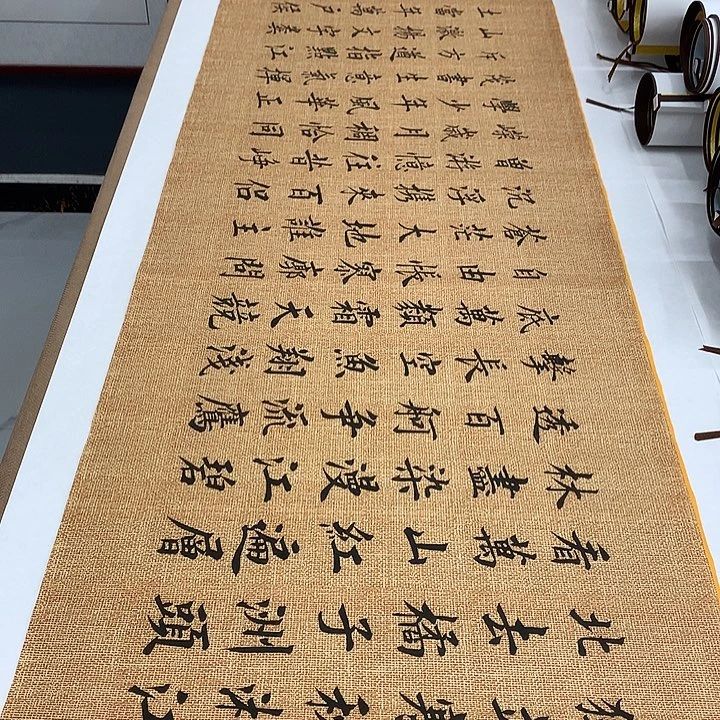 北去橘子洲頭
看萬山紅遍層
林盡染漫江碧
透百舸争流鷹
擊長空魚翔淺
底萬類霜天競
自由悵寥廓問
蒼茫大地誰主
沉浮携來百侶
曾游憶往昔崢
嶸歲月稠恰同
學少年風華正
茂書生意氣揮
斥方遒指點江
山激揚文字糞
土當年萬户侯